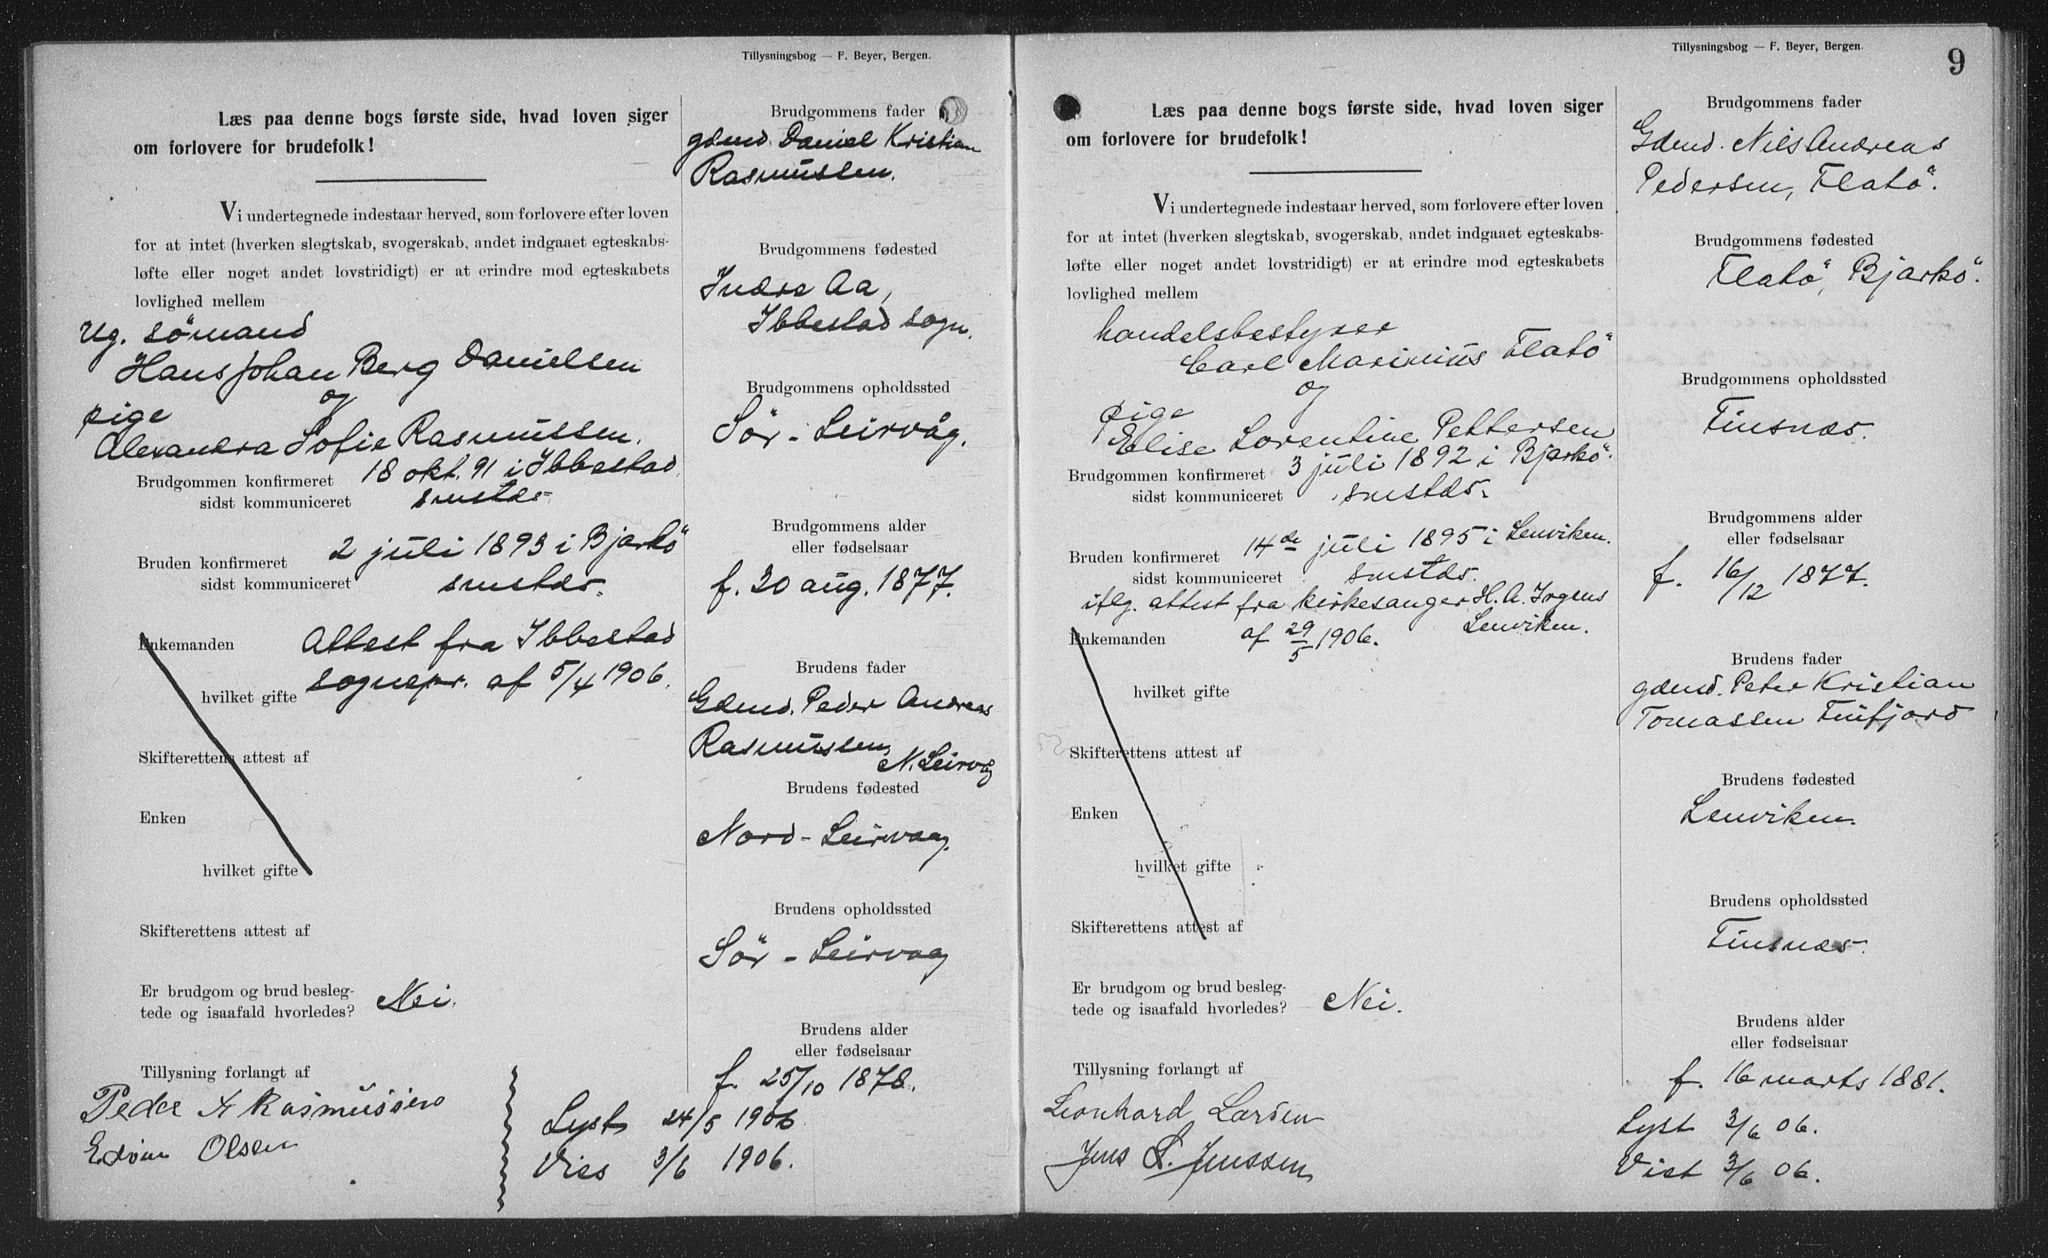 Tillysningsbog — F. Beyer, Bergen.
Læs paa denne bogs første side, hvad loven siger
om forlovere for brudefolk!
Vi undertegnede indestaar herved, som forlovere efter loven
for at intet (hverken slegtskab, svogerskab, andet indgaaet egteskabs-
løfte eller noget andet lovstridigt) er at erindre mod egteskabets
lovlighed mellem
Ug. sömand
Hans Johan Berg Danielsen
og
pige
Alexandra Sofie Rasmussen.
Brudgommen konfirmeret 18 okt. 91 i Ibbestad
sidst kommuniceret smstds.
Bruden konfirmeret 2 juli 1893 i Bjarkö
sidst kommuniceret smstds.
Enkemanden Attest fra Ibbestad
hvilket gifte sognepr. af 5/4 1906.
Skifterettens attest af
Enken
hvilket gifte
Skifterettens attest af
Er brudgom og brud besleg-
tede og isaafald hvorledes? Nei.
Tillysning forlangt af
Peder A Rasmussen
Edvin Olsen
Lyst 24/5 1906
Vies 3/6 1906.
Brudgommens fader
gdmd. Daniel Kristian
Rasmussen.
Brudgommens fødested
Indre Aa,
Ibbestad sogn.
Brudgommens opholdssted
Sör-Leirvåg.
Brudgommens alder
eller fødselsaar
f. 20 aug. 1877.
Brudens fader
Gdmd. Peder Andreas
Rasmussen,
N. Leirvåg
Brudens fødested
Nord-Leirvaag.
Brudens opholdssted
Sör-Leirvaag
Brudens alder
eller fødselsaar
f. 25/10 1878.
Tillysningsbog — F. Beyer, Bergen.
9
Læs paa denne bogs første side, hvad loven siger
om forlovere for brudefolk!
Vi undertegnede indestaar herved, som forlovere efter loven
for at intet (hverken slegtskab, svogerskab, andet indgaaet egteskabs-
løfte eller noget andet lovstridigt) er at erindre mod egteskabets
lovlighed mellem
handelsbestyrer
Carl Marinius Flatö
og
pige
Elise Lorentine Pettersen
Brudgommen konfirmeret 3 juli 1892 i Bjarkö.
sidst kommuniceret smstds.
Bruden konfirmeret 14de juli 1895 i Lenviken.
sidst kommuniceret smstds.
iflg. attest fra kirkesanger H. A.
Lenviken.
Enkemanden af 29/5 1906.
hvilket gifte
Skifterettens attest af
Enken
hvilket gifte
Skifterettens attest af
Er brudgom og brud besleg-
tede og isaafald hvorledes? Nei.
Tillysning forlangt af
Leonhard Larsen
Jens L. Jenssen
Brudgommens fader
Gdmd. Nils Andreas
Pedersen, Flatö.
Brudgommens fødested
Flatö, Bjarkö.
Brudgommens opholdssted
Finsnæs.
Brudgommens alder
eller fødselsaar
f. 16/12 1877.
Brudens fader
gdmd. Peter Kristian
Tomassen Finfjord
Brudens fødested
Lenviken.
Brudens opholdssted
Finsnæs.
Brudens alder
eller fødselsaar
f. 16 marts 1881.
Lyst 3/6 06.
Vist 3/6 06.